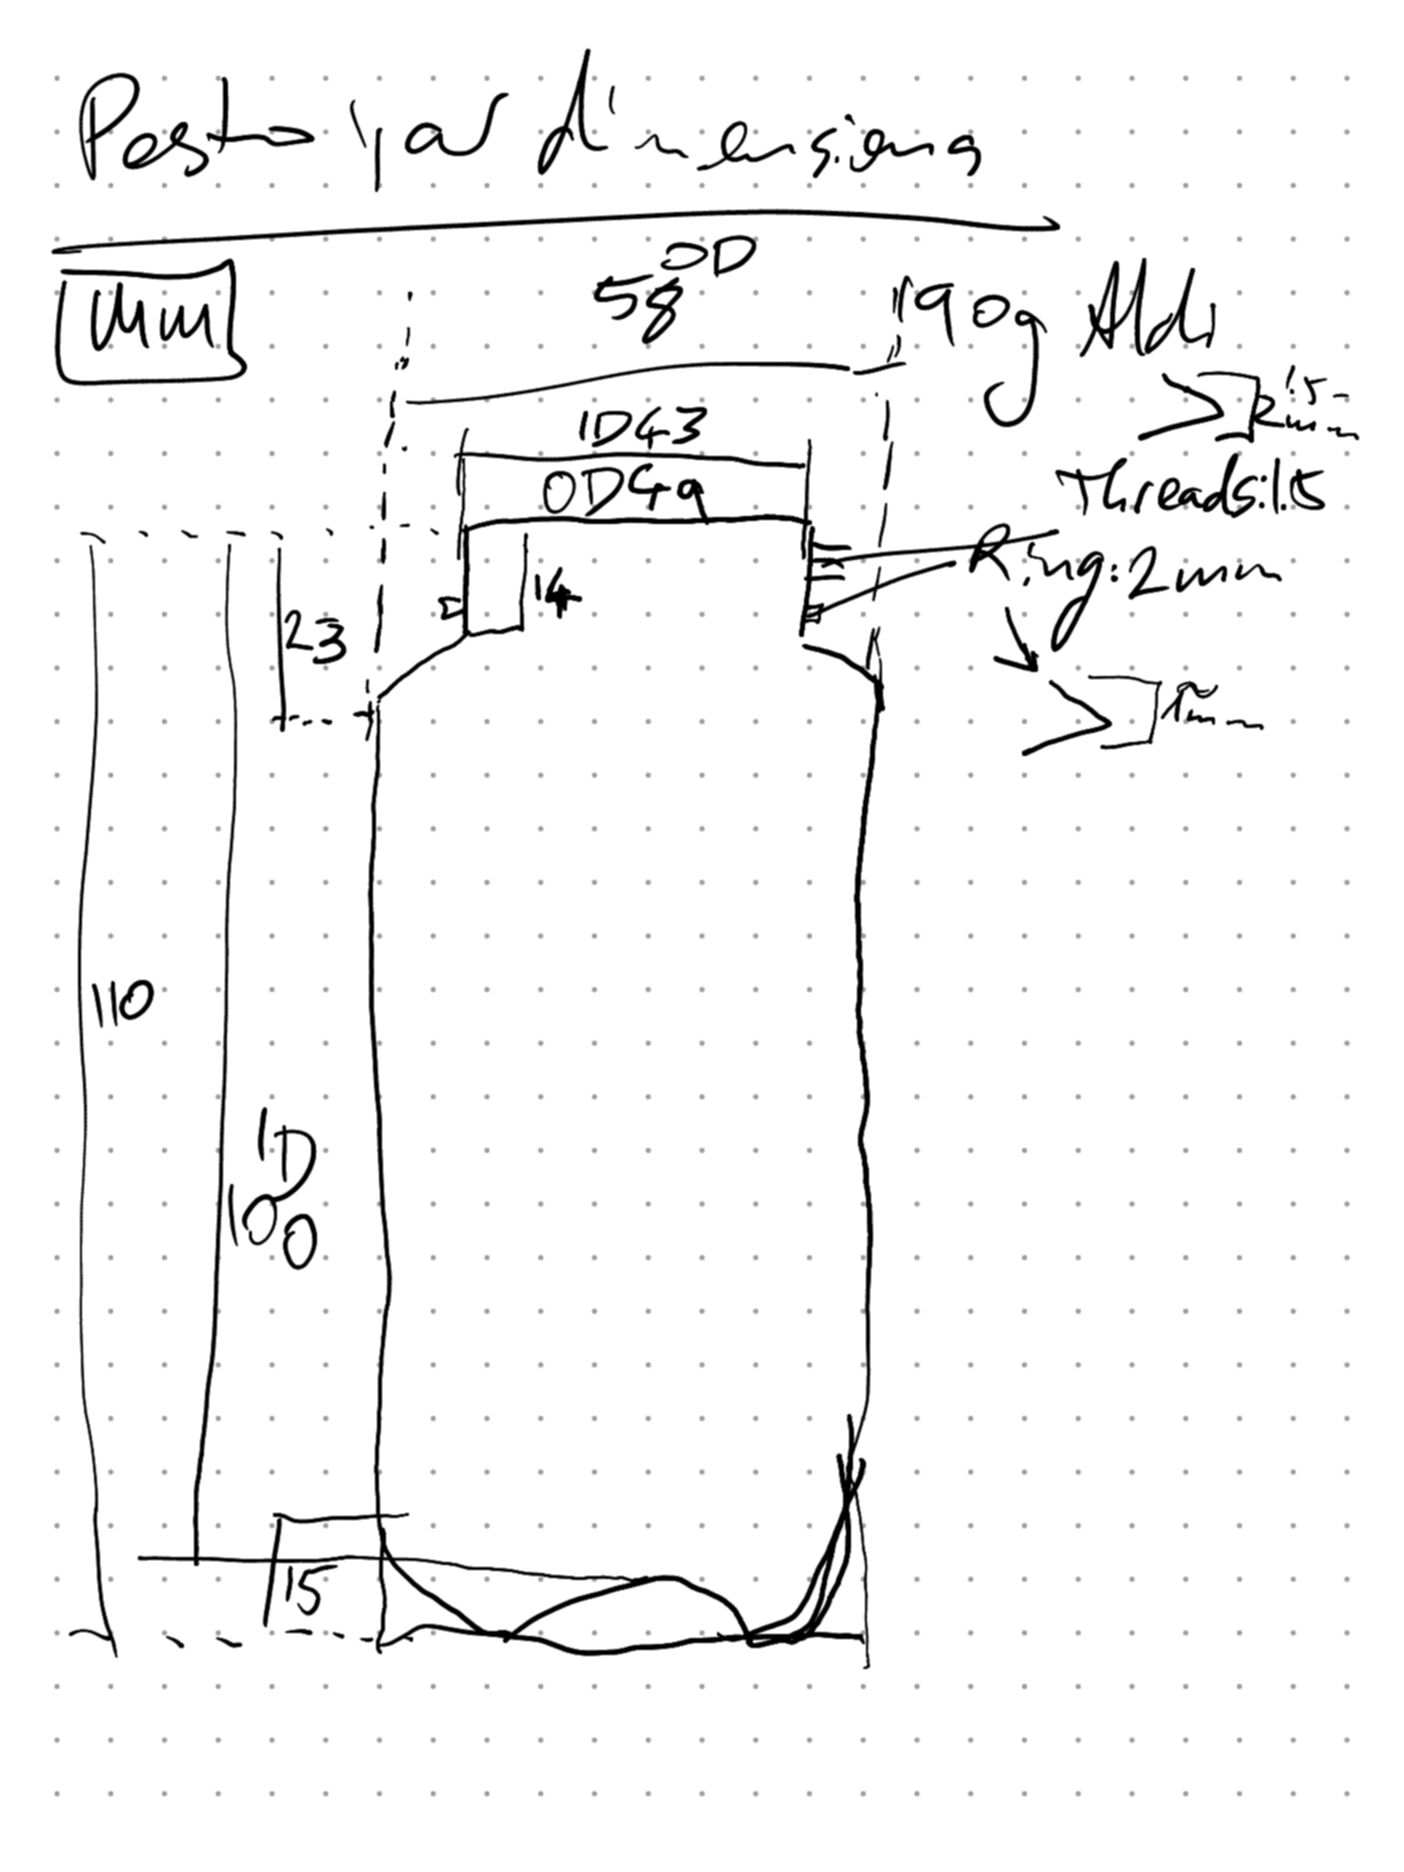 Pesto jar dimensions
mm
OD
58
190g Aldi
1.5
2mm
ID43
OD49
Threads:1.5
Ring:2mm
14
23
1mm
110
ID
100
15